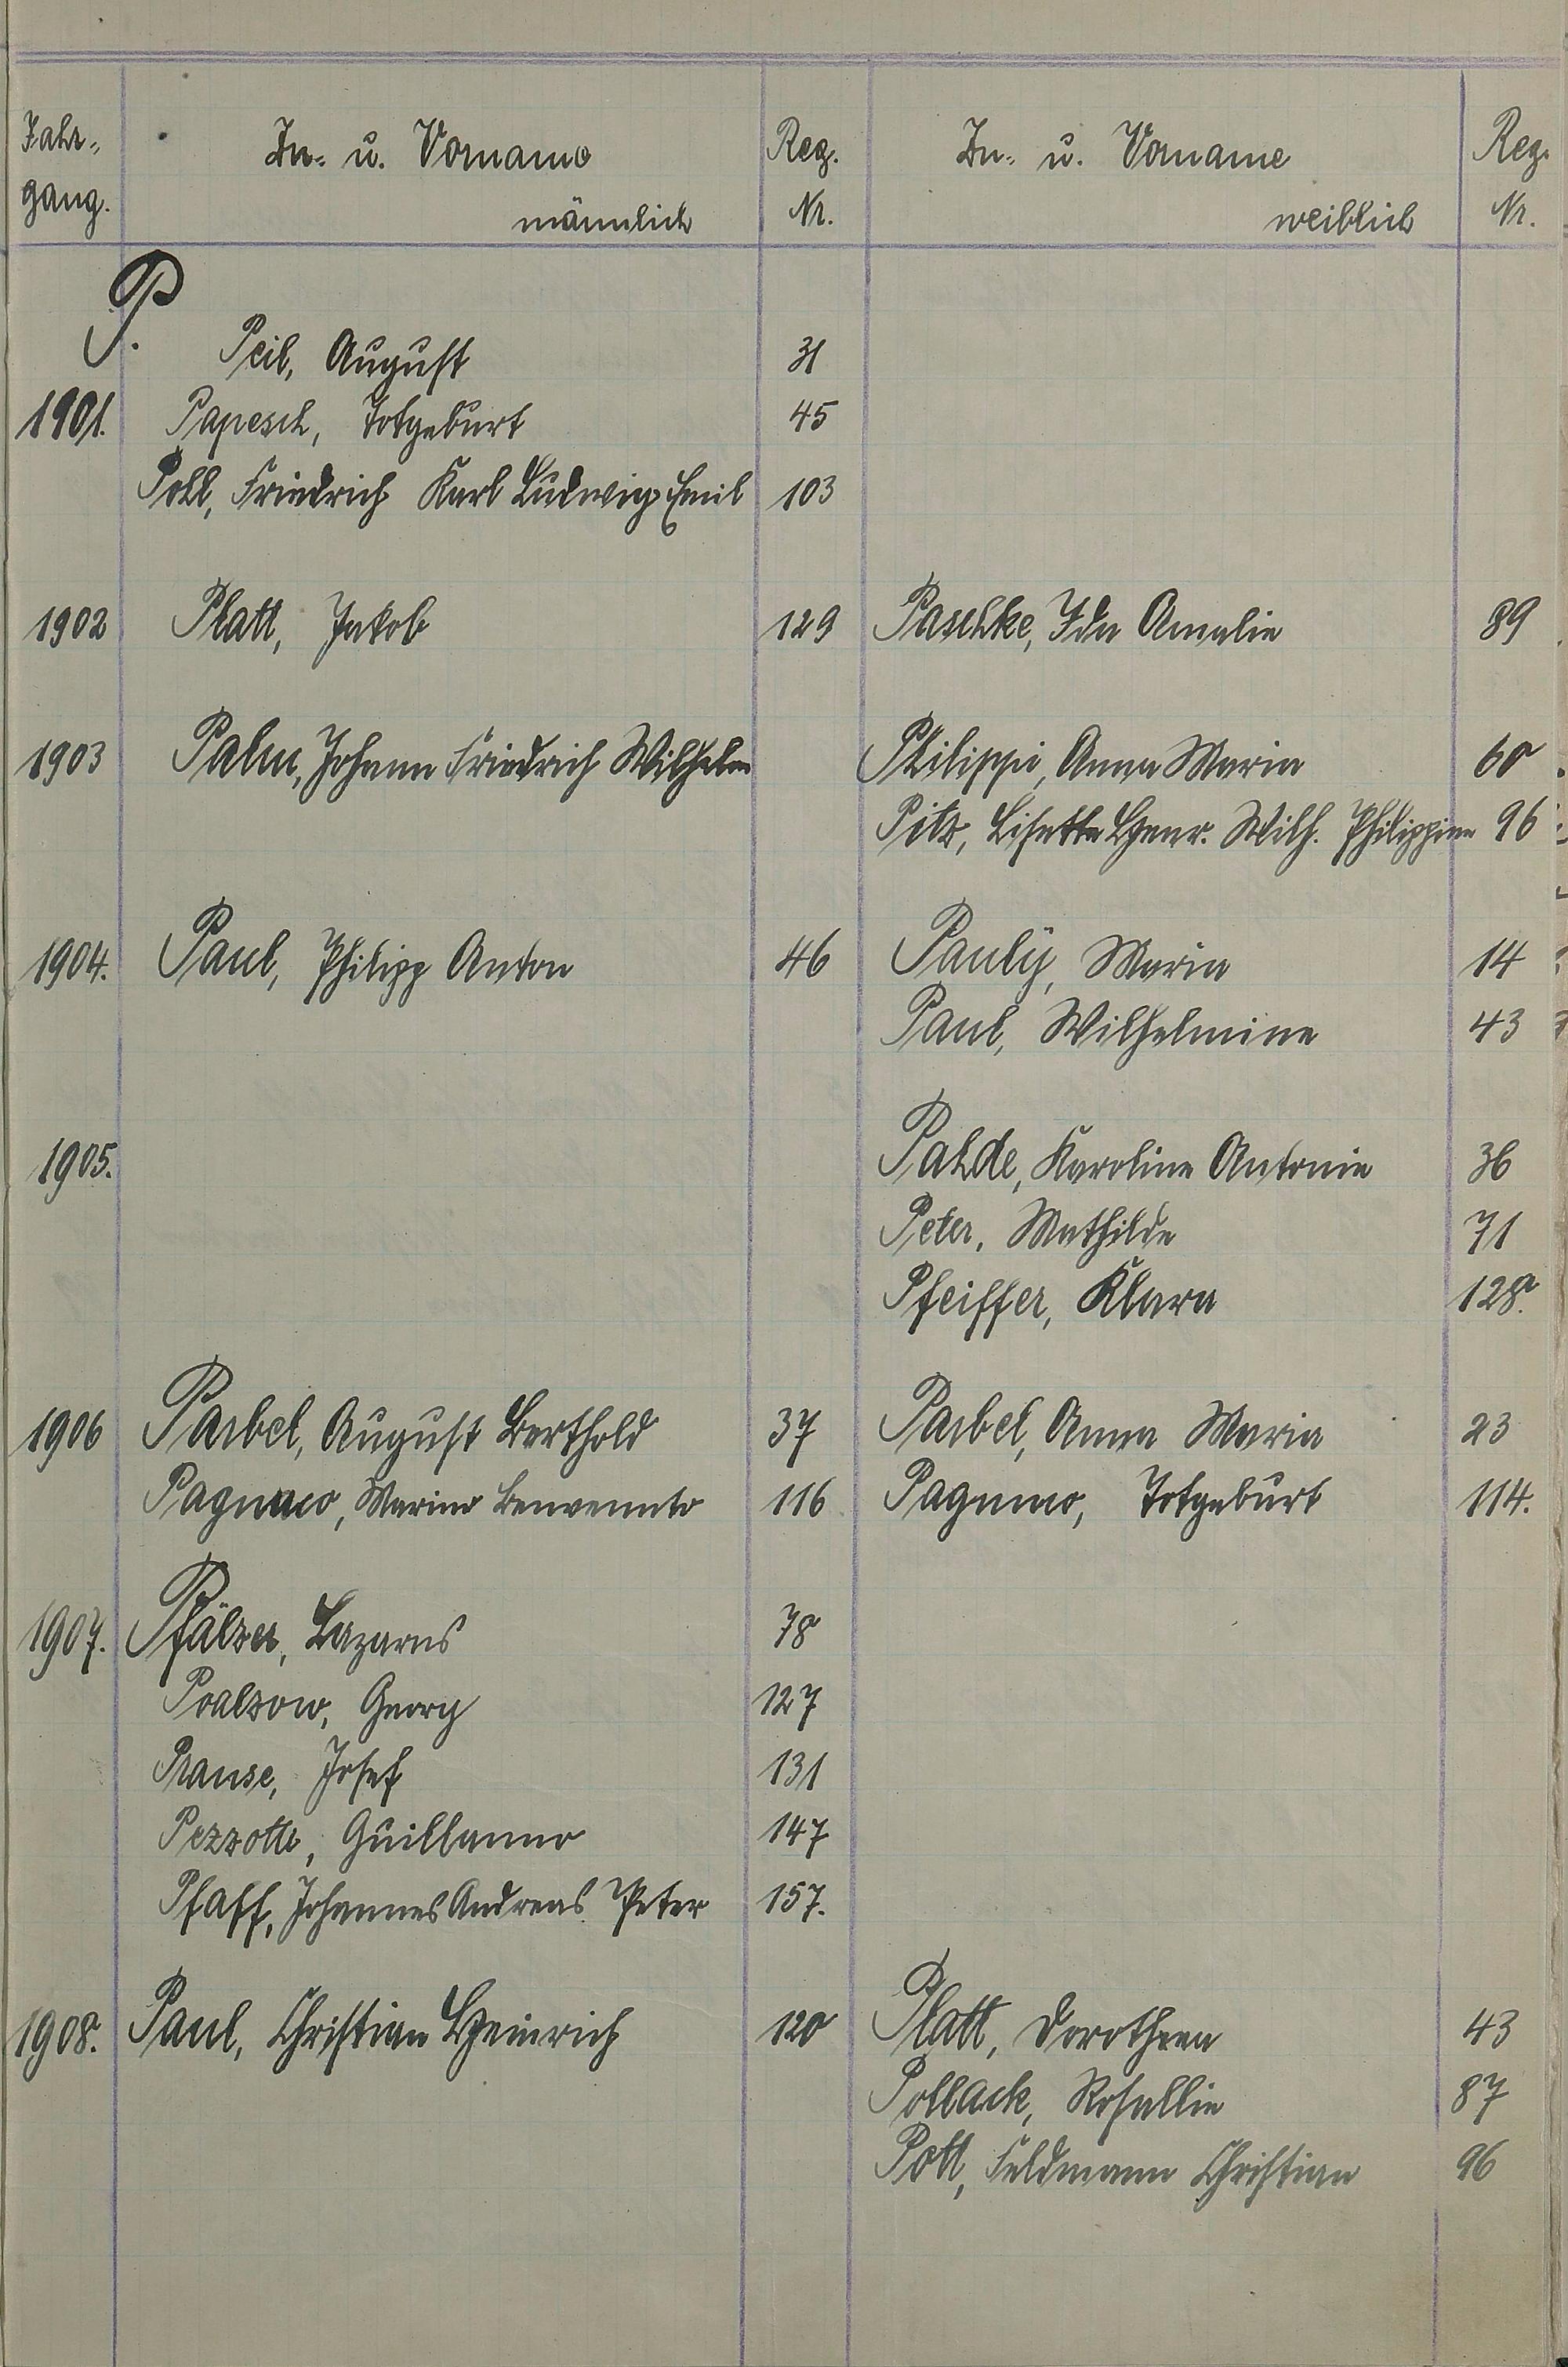 Jahr-
gang.
Zu- u. Vorname
männlich
Reg.
Nr.
Zu- u. Vorname
weiblich
Reg.
Nr.
P.
Peil, August 31
1901. Papesch, Totgeburt 45
Poll, Friedrich Karl Ludwig Emil 103
1902 Platt, Jakob 129 Paschke, Ida Amalie 89
1903 Palm, Johann Friedrich Wilhelm Philippi, Anna Maria 60
Pitz, Lisette Henr. Wilh. Philippine 96
1904. Paul, Philipp Anton 46 Pauly, Maria 14
Paul, Wilhelmine 43
1905. Pahde, Karoline Antonie 36
Peter, Mathilde 71
Pfeiffer, Klara 128.
1906 Parbel, August Berthold 37 Parbel, Anna Maria 23
Pagnaco, Marino Benvennto 116 Totgeburt 114.
1907. Pfälzer, Lazarus 78
Poalzow, Georg 127
Prause, Josef 131
Pezzotti, 147
Pfaff, Johannes Andreas Peter 157.
1908. Paul, Christian Heinrich 120 Platt, Dorothea 43
Pollack, Rosallie 87
Pott, Feldmann Christian 96